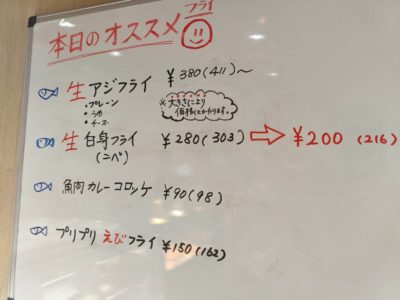 本日のオススメ
フライ
生アジフライ ¥380(411)〜
・プレーン
・うめ
・チーズ
※大きさにより
価格とかわります。
生白身フライ ¥280(303) ⇒ ¥200 (216)
(ニベ)
魚肉カレーコロッケ ¥90(98)
プリプリえびフライ ¥150(162)